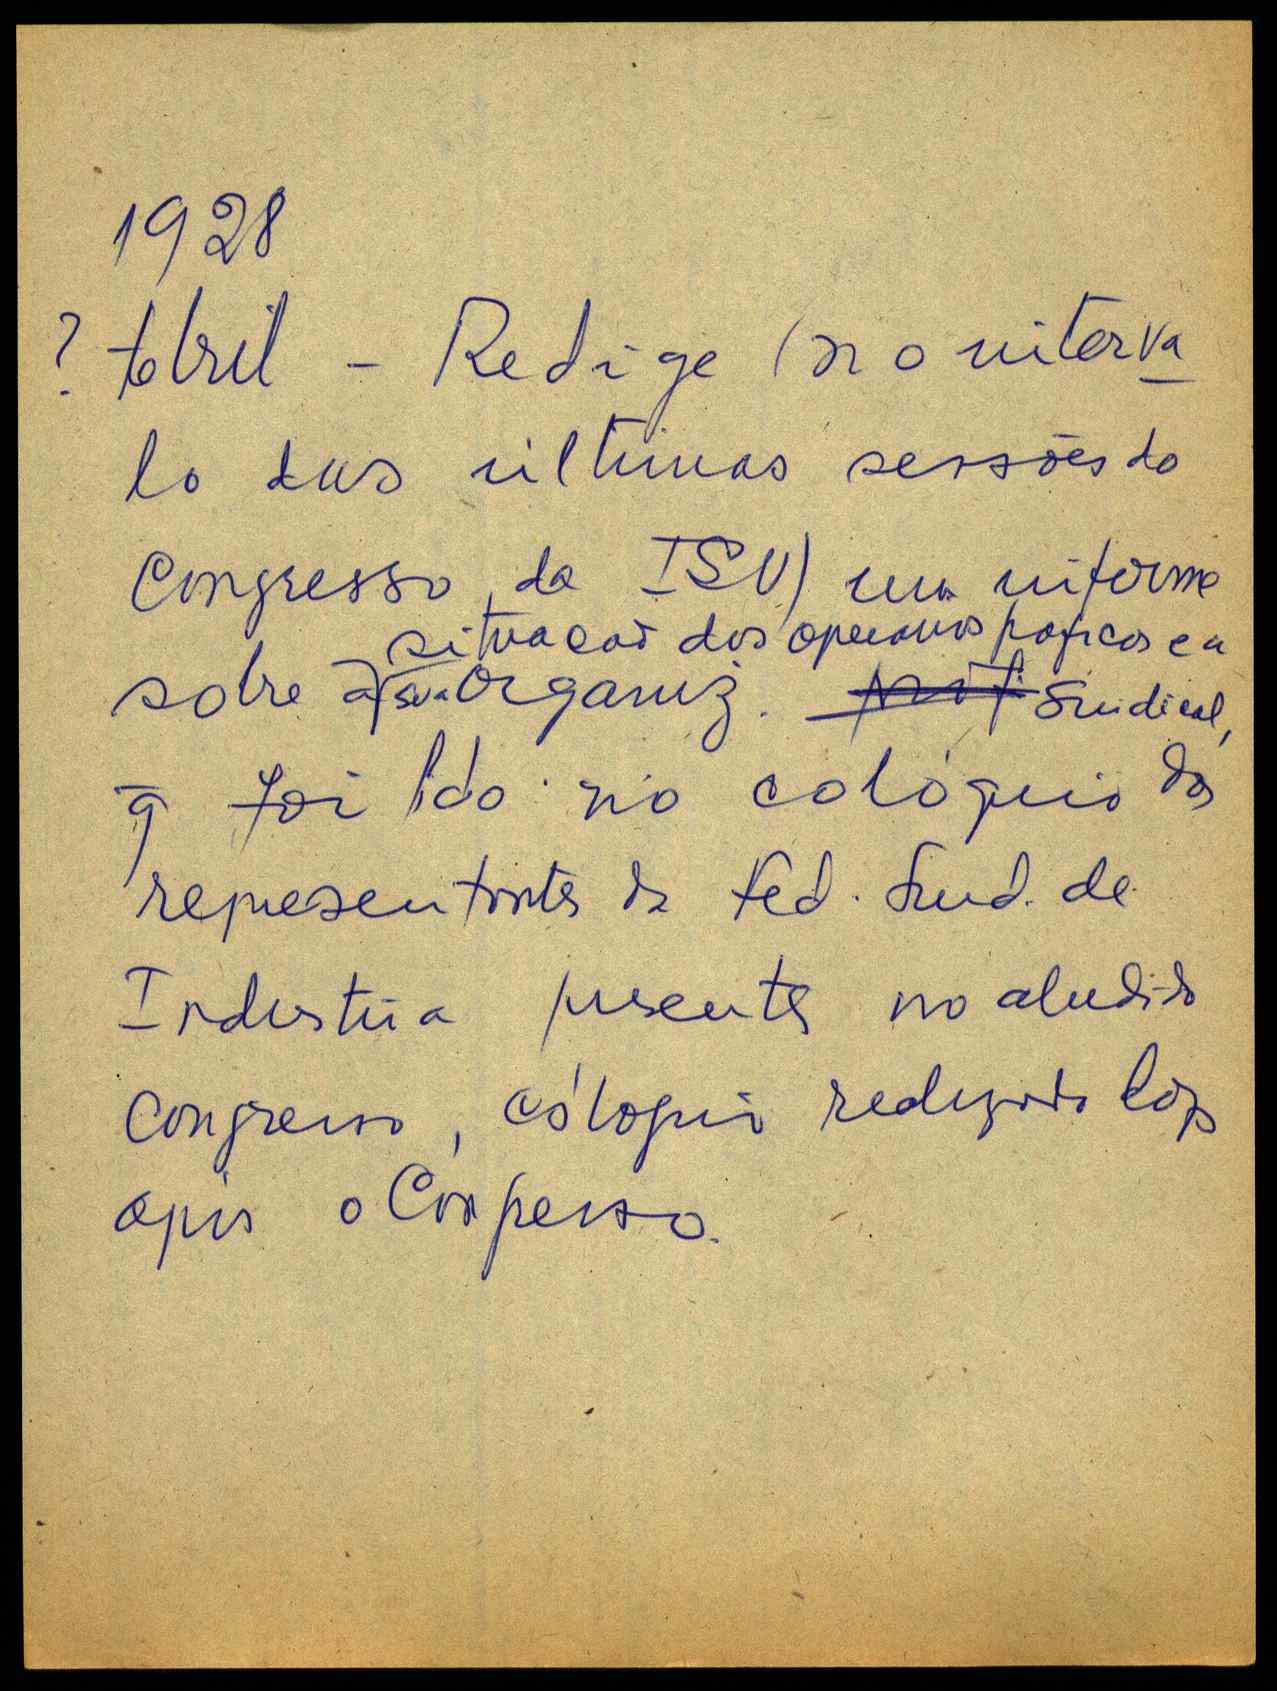 1928
? Abril - Redige (no interva
lo das últimas sessões do
Congresso da ISV) um informe
situação dos operarios graficos e a
sobre a sua Organiz. Sindical,
q̄ foi lido no colóquio dos
representantes da Fed. Sind. de
Indústria presentes no aludido
Congresso, cóloquio realizado logo
após o Congresso.